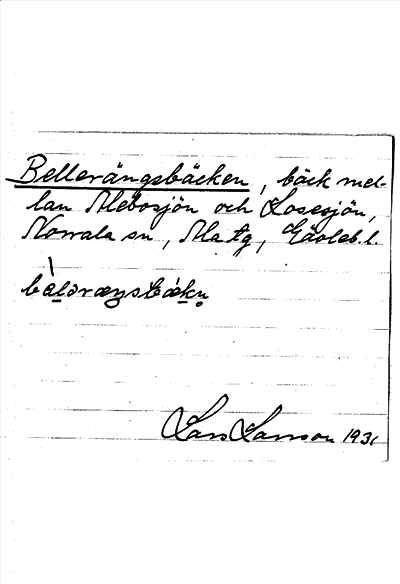 Bellerängsbäcken, bäck mel-
lan Alebosjön och Losesjön,
Norrala sn, Ala tg, Gävleb. l.
Lars Larsson 1931